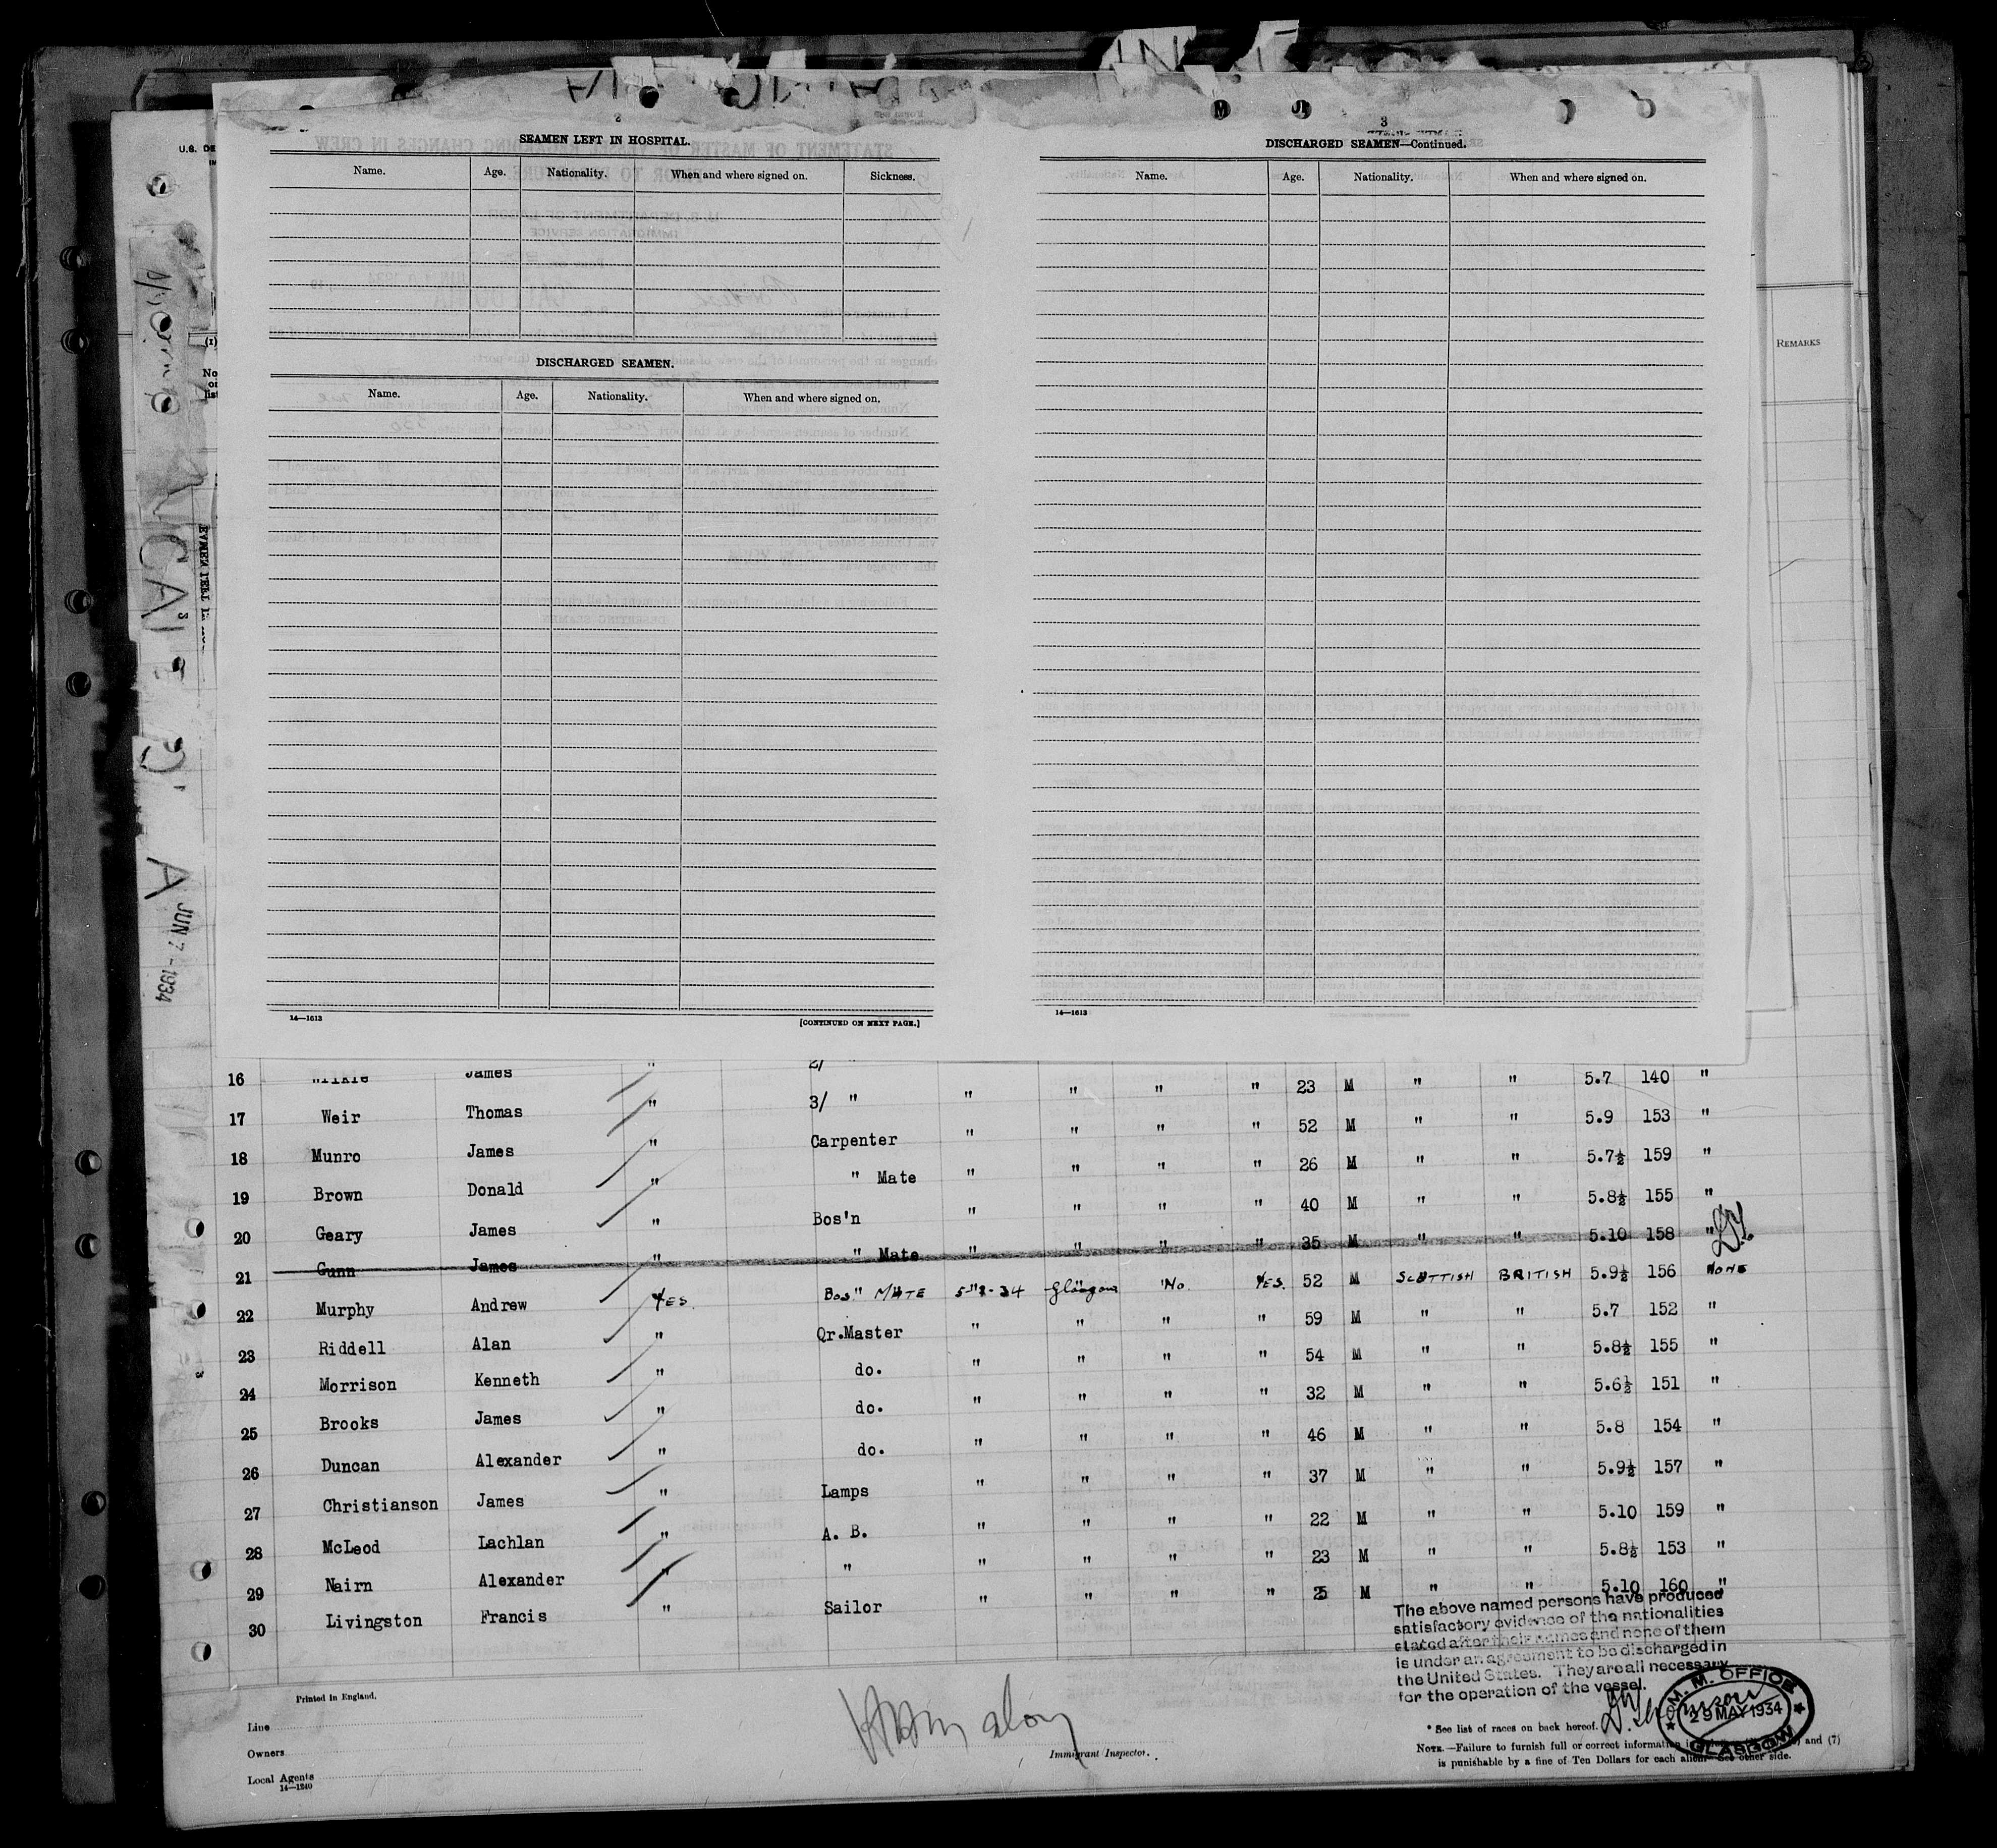 2
SEAMEN LEFT IN HOSPITAL.
Name. Age. Nationality. When and where signed on. Sickness.
DISCHARGED SEAMEN.
Name. Age. Nationality. When and where signed on.
14—1613 [CONTINUED ON NEXT PAGE.]
3
DISCHARGED SEAMEN—Continued.
Name. Age. Nationality. When and where signed on.
14—1613
REMARKS
JUN 7 - 1934
16 Wilkie James " 2/ "
" " " " 23 M " " 5.7 140 "
17 Weir Thomas " 3/ "
" " " " 52 M " " 5.9 153 "
18 Munro James " Carpenter
" " " " 26 M " " 5.7½ 159 "
19 Brown Donald " " Mate
" " " " 40 M " " 5.8½ 155 "
20 Geary James " Bos'n
" " " " 35 M " " 5.10 158 "
21 Gunn James " " Mate
22 Murphy Andrew YES. Bos" MATE 5-"2-34 Glasgow No. YES. 52 M SCOTTISH BRITISH 5.9½ 156 NONE
" " " " 59 M " " 5.7 152 "
23 Riddell Alan " Qr.Master
" " " " 54 M " " 5.8½ 155 "
24 Morrison Kenneth " do.
" " " " 32 M " " 5.6½ 151 "
25 Brooks James " do.
" " " " 46 M " " 5.8 154 "
26 Duncan Alexander " do.
" " " " 37 M " " 5.9½ 157 "
27 Christianson James " Lamps
" " " " 22 M " " 5.10 159 "
28 McLeod Lachlan " A. B.
" " " " 23 M " " 5.8½ 153 "
29 Nairn Alexander " "
" " " " 25 M " " 5.10 160 "
30 Livingston Francis " Sailor
The above named persons have produced
satisfactory evidence of the nationalities
stated after their names and none of them
is under an agreement to be discharged in
the United States. They are all necessary
for the operation of the vessel.
M. M. OFFICE
29 MAY 1934
GLASGOW
Printed in England.
Line
Owners
Local Agents
14—1240
Immigrant Inspector.
* See list of races on back hereof.
NOTE.—Failure to furnish full or correct information and (7)
is punishable by a fine of Ten Dollars for each alien. See other side.